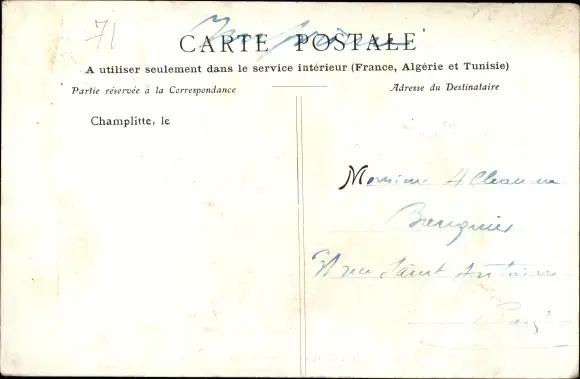 71
CARTE POSTALE
A utiliser seulement dans le service intérieur (France, Algérie et Tunisie)
Partie réservée à la Correspondance
Adresse du Destinataire
Champlitte, le
Monsieur
rue Saint Antoine
Paris